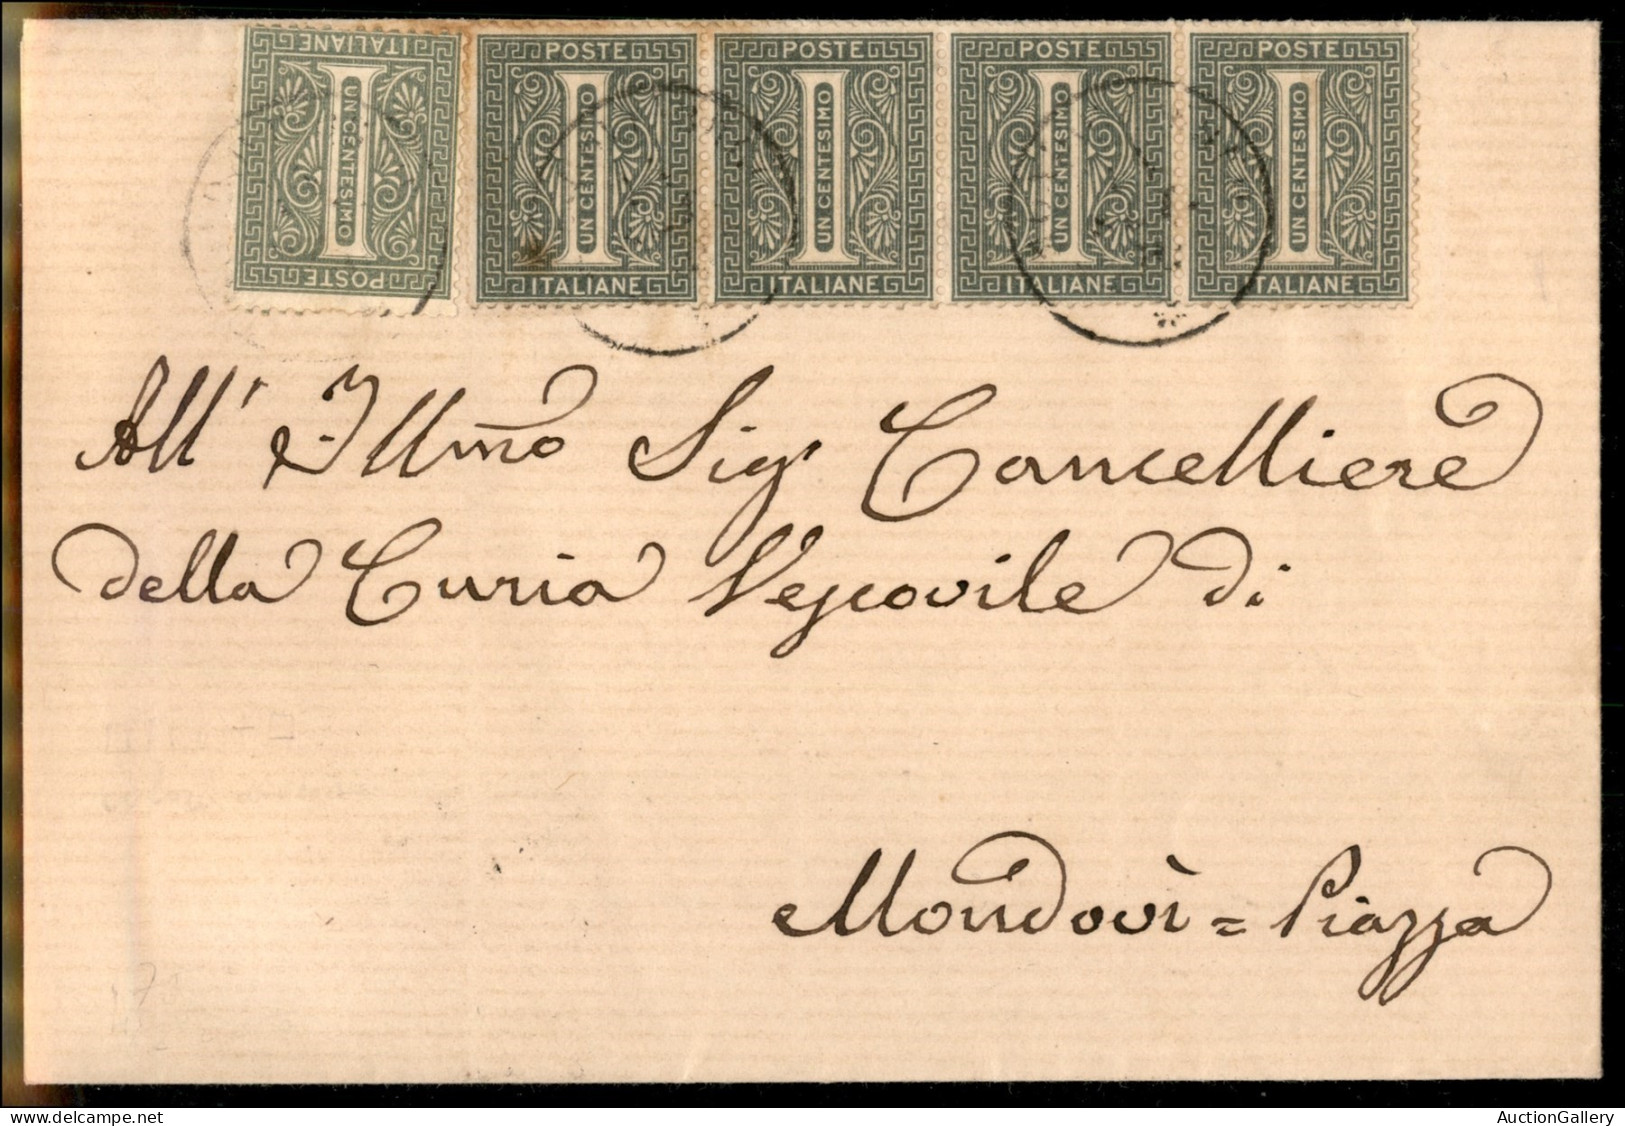 ITALIANE
UN CENTESIMO
POSTE
POSTE
UN CENTESIMO
ITALIANE
POSTE
UN CENTESIMO
ITALIANE
POSTE
UN CENTESIMO
ITALIANE
POSTE
UN CENTESIMO
ITALIANE
All' Illmo Sigr Cancelliere
della Curia Vescovile di
Mondovì = Piazza
delcampe.net
AuctionGallery